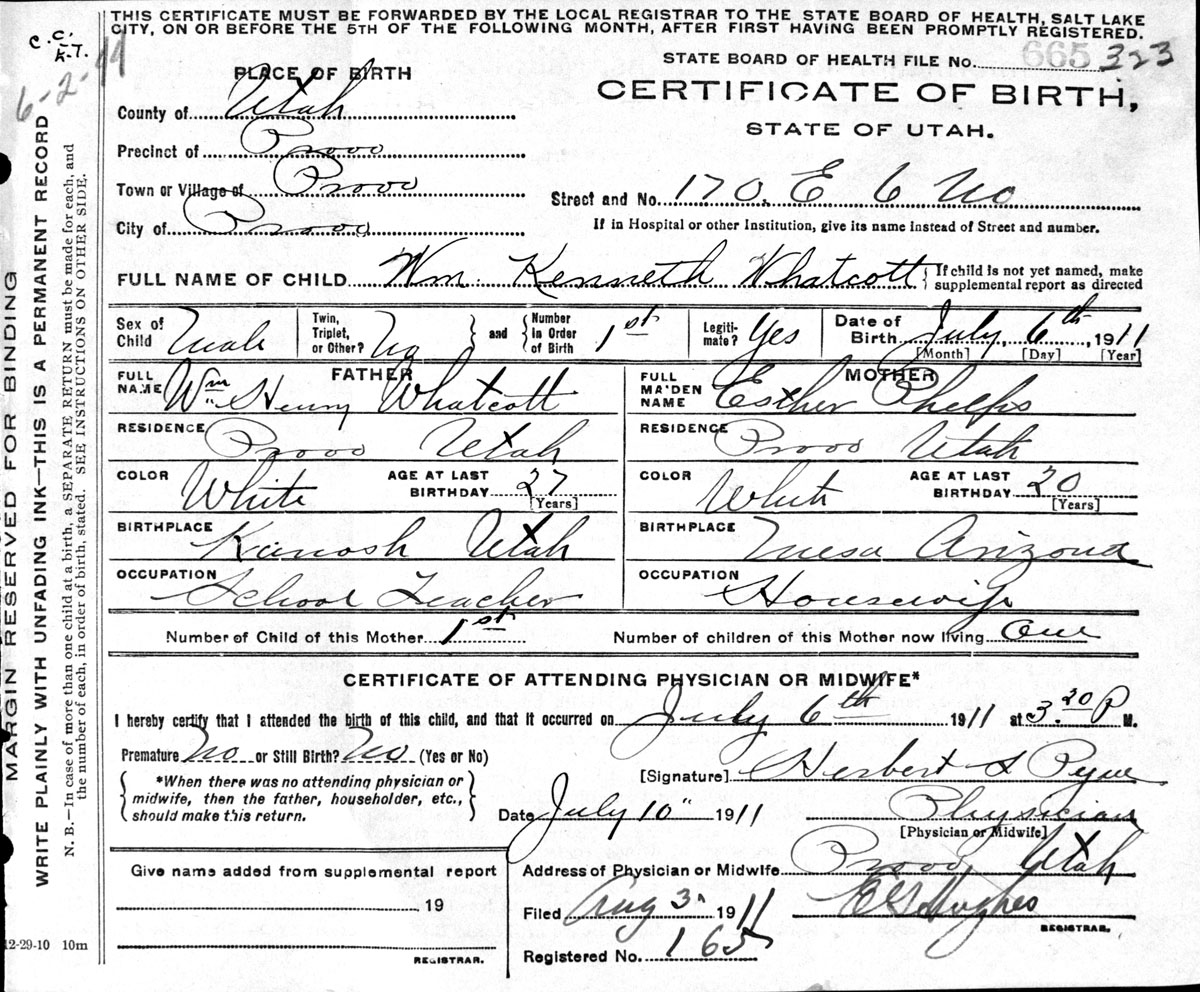 THIS CERTIFICATE MUST BE FORWARDED BY THE LOCAL REGISTRAR TO THE STATE BOARD OF HEALTH, SALT LAKE
CITY, ON OR BEFORE THE 5TH OF THE FOLLOWING MONTH, AFTER FIRST HAVING BEEN PROMPTLY REGISTERED.
C.C.
K.T.
6-2-44
STATE BOARD OF HEALTH FILE No. 665 323
PLACE OF BIRTH
CERTIFICATE OF BIRTH,
STATE OF UTAH.
County of Utah
Precinct of Provo
Town or Village of Provo
Street and No. 170. E 6 No
City of Provo
If in Hospital or other Institution, give its name instead of Street and number.
FULL NAME OF CHILD Wm. Kenneth Whatcott { If child is not yet named, make
supplemental report as directed
Sex of Child Male Twin, Triplet, or Other? No } and { Number in Order of Birth 1st Legitimate? Yes Date of Birth July, 6th, 1911
[Month] [Day] [Year]
FATHER
FULL NAME Wm Henry Whatcott
RESIDENCE Provo Utah
COLOR White AGE AT LAST BIRTHDAY 27 [Years]
BIRTHPLACE Kanosh Utah
OCCUPATION School Teacher
MOTHER
FULL MAIDEN NAME Esther Phelps
RESIDENCE Provo Utah
COLOR White AGE AT LAST BIRTHDAY 20 [Years]
BIRTHPLACE Mesa Arizona
OCCUPATION Housewife
Number of Child of this Mother 1st Number of children of this Mother now living One
CERTIFICATE OF ATTENDING PHYSICIAN OR MIDWIFE*
I hereby certify that I attended the birth of this child, and that it occurred on July 6th 1911 at 3.20 P M.
Premature No or Still Birth? No (Yes or No)
{ *When there was no attending physician or
midwife, then the father, householder, etc.,
should make this return. }
[Signature] Herbert S Pyne
Date July 10" 1911 Physician
[Physician or Midwife]
Give name added from supplemental report
19
REGISTRAR.
Address of Physician or Midwife Provo Utah
Filed Aug 3. 1911 Hughes
REGISTRAR.
Registered No. 165
12-29-10 10m
MARGIN RESERVED FOR BINDING
WRITE PLAINLY WITH UNFADING INK—THIS IS A PERMANENT RECORD
N. B.—In case of more than one child at a birth, a SEPARATE RETURN must be made for each, and
the number of each, in order of birth, stated. SEE INSTRUCTIONS ON OTHER SIDE.